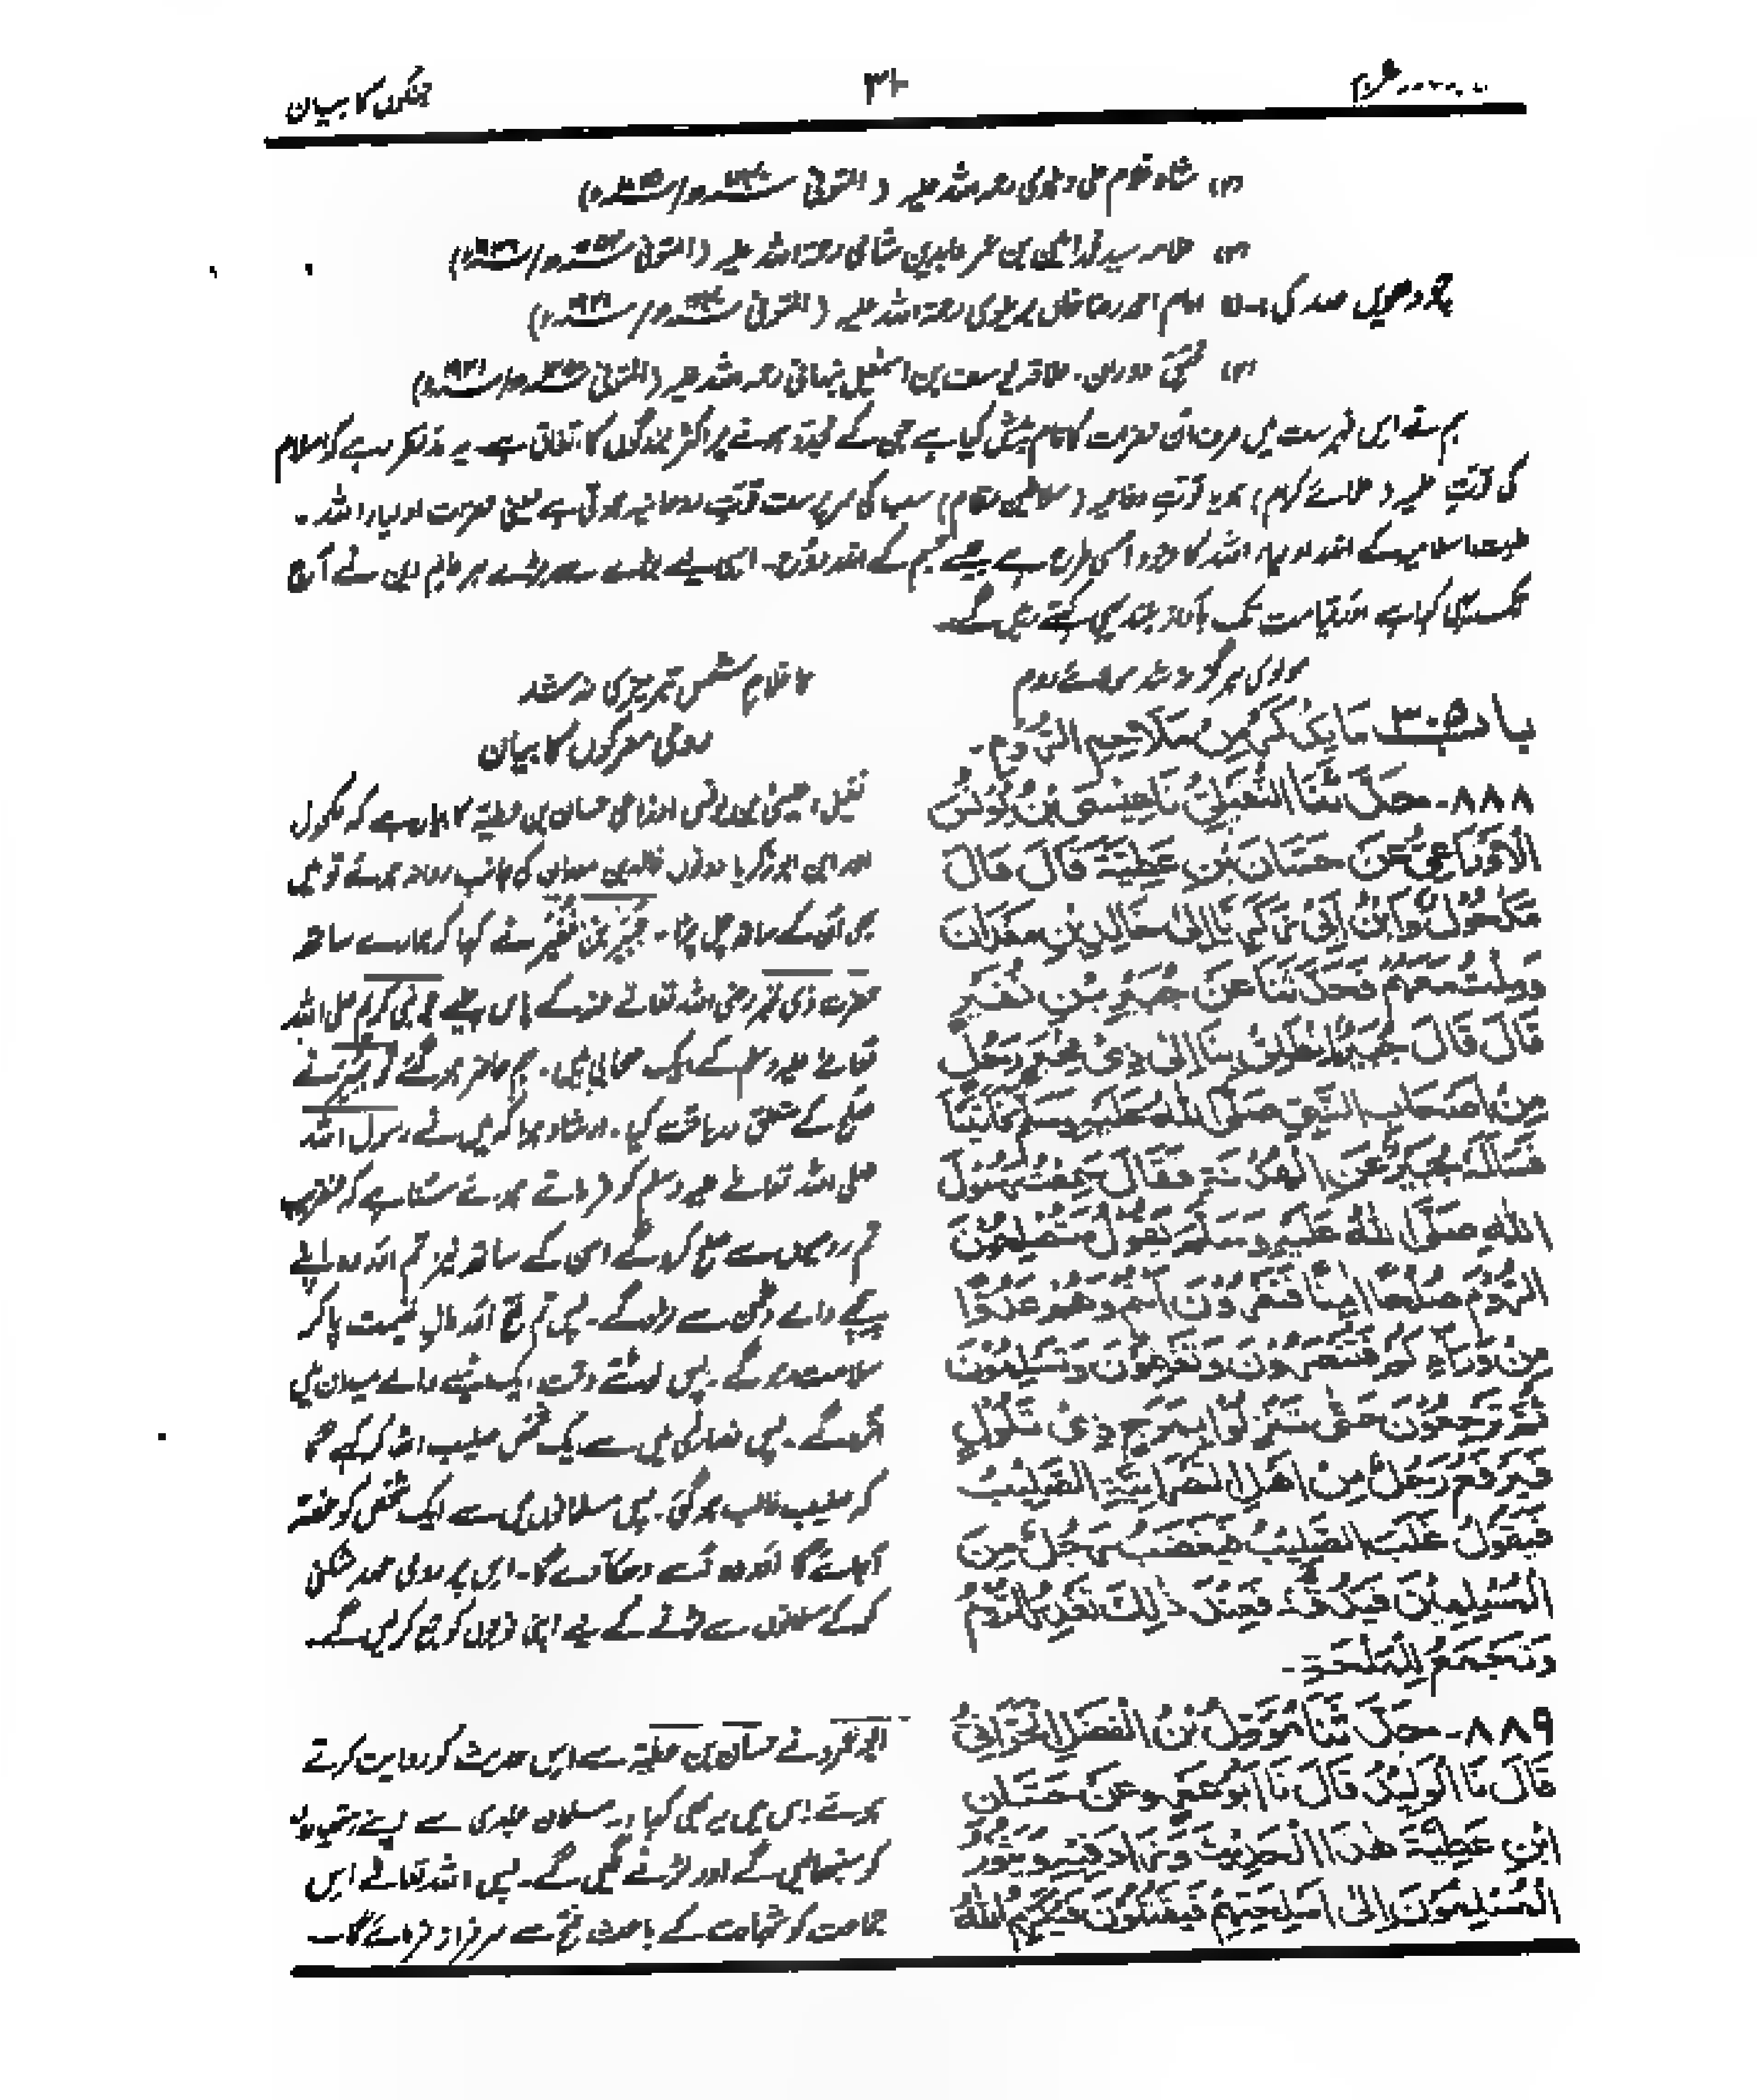 جنگوں کا بیان
(۲) شاہ غلام علی دہلوی رحمۃ اللہ علیہ (المتوفی
(۳) علامہ سید محمد امین بن عمر عابدین شامی رحمۃ اللہ علیہ (المتوفی
چودھویں صدی کے امام احمد رضا خاں بریلوی رحمۃ اللہ علیہ (المتوفی
(۲) دوراں، علامہ یوسف بن اسمٰعیل نبہانی رحمۃ اللہ علیہ (المتوفی
ہم نے اس فہرست میں صرف ان حضرات کا نام پیش کیا ہے جن کے مجدد ہونے پر اکثر بزرگوں کا اتفاق ہے۔ یہ مدنظر رہے کہ اسلام
کی قوتِ علمیہ (علمائے کرام) ہو یا قوتِ دفاعیہ (سلاطین) سب کی سرپرست قوتِ روحانیہ ہوتی ہے یعنی حضرات اولیاء اللہ۔
ملتِ اسلامیہ کے اندر اولیاء اللہ کا وجود اسی طرح ہے جیسے جسم کے اندر روح۔ اسی لیے بڑے سے بڑے ہر عالمِ دین نے آج
تک یہی کہا ہے اور قیامت تک بآواز بلند یہی کہتے رہیں گے۔
مولوی ہرگز نہ شد مولائے روم
تا غلامِ شمس تبریزی نہ شد
باب ۳۰۵ مَا يُذْكَرُ مِنْ مَلَاحِمِ الرُّومِ۔
رومی معرکوں کا بیان
۸۸۸۔ حَدَّثَنَا النُّفَيْلِيُّ نَا عِيْسَى بْنُ يُوْنُسَ
الْأَوْزَاعِيُّ عَنْ حَسَّانَ بْنِ عَطِيَّةَ قَالَ قَالَ
مَكْحُوْلٌ وَابْنُ أَبِيْ زَكَرِيَّا إِلٰى خَالِدِ بْنِ مَعْدَانَ
وَمِلْتُ مَعَهُمْ فَحَدَّثَنَا عَنْ جُبَيْرِ بْنِ نُفَيْرٍ
قَالَ قَالَ جُبَيْرٌ انْطَلِقْ بِنَا إِلٰى ذِيْ مِخْبَرٍ رَجُلٍ
مِنْ أَصْحَابِ النَّبِيِّ صَلَّى اللهُ عَلَيْهِ وَسَلَّمَ فَأَتَيْنَا
فَسَأَلَهُ جُبَيْرٌ عَنِ الْهُدْنَةِ فَقَالَ سَمِعْتُ رَسُوْلَ
اللهِ صَلَّى اللهُ عَلَيْهِ وَسَلَّمَ يَقُوْلُ سَتُصَالِحُوْنَ
الرُّوْمَ صُلْحًا اٰمِنًا فَتَغْزُوْنَ أَنْتُمْ وَهُمْ عَدُوًّا
مِنْ وَرَائِكُمْ فَتُنْصَرُوْنَ وَتَغْنَمُوْنَ وَتَسْلَمُوْنَ
ثُمَّ تَرْجِعُوْنَ حَتّٰى تَنْزِلُوْا بِمَرْجٍ ذِيْ تُلُوْلٍ
فَيَرْفَعُ رَجُلٌ مِنْ أَهْلِ النَّصْرَانِيَّةِ الصَّلِيْبَ
فَيَقُوْلُ غَلَبَ الصَّلِيْبُ فَيَغْضَبُ رَجُلٌ مِنَ
الْمُسْلِمِيْنَ فَيَدُقُّهُ فَعِنْدَ ذٰلِكَ تَغْدِرُ الرُّوْمُ
وَتَجْمَعُ لِلْمَلْحَمَةِ۔
نفیل، عیسیٰ بن یونس، اوزاعی حسان بن عطیہ کا بیان ہے کہ مکحول
اور ابن ابو زکریا دونوں خالد بن معدان کی جانب روانہ ہوئے تو میں
بھی ان کے ساتھ چل پڑا۔ جبیر بن نفیر نے کہا کہ ہمارے ساتھ
حضرت ذی مخبر رضی اللہ تعالیٰ عنہ کے پاس چلیے جو نبی کریم صلی اللہ
تعالیٰ علیہ وسلم کے ایک صحابی ہیں۔ ہم حاضر ہو گئے تو جبیر نے
صلح کے متعلق دریافت کیا۔ ارشاد ہوا کہ میں نے رسول اللہ
صلی اللہ تعالیٰ علیہ وسلم کو فرماتے ہوئے سنا ہے کہ عنقریب
تم رومیوں سے صلح کرو گے اسی کے ساتھ نیز تم اور وہ اپنے
پیچھے والے دشمن سے لڑو گے۔ پس تم فتح اور مالِ غنیمت پا کر
سلامت رہو گے۔ پس لوٹتے وقت ایک ٹیلے والے میدان میں
اترو گے۔ پس نصاریٰ میں سے ایک شخص صلیب اٹھا کر کہے گا
کہ صلیب غالب ہو گئی۔ پس مسلمانوں میں سے ایک شخص کو غصہ
آجائے گا اور وہ اسے دے گا۔ اس پر رومی عہد شکنی
کر کے مسلمانوں سے لڑنے کے لیے اپنی فوجوں کو جمع کر لیں گے۔
۸۸۹۔ حَدَّثَنَا مُؤَمَّلُ بْنُ الْفَضْلِ الْحَرَّانِيُّ
قَالَ نَا الْوَلِيْدُ قَالَ نَا أَبُوْ عَمْرٍو عَنْ حَسَّانِ
ابْنِ عَطِيَّةَ هٰذَا الْحَدِيْثَ وَزَادَ فِيْهِ وَيَثُوْرُ
الْمُسْلِمُوْنَ إِلٰى أَسْلِحَتِهِمْ فَيَقْتَتِلُوْنَ فَيُكْرِمُ اللهُ
ابو عمرو نے حسان بن عطیہ سے اس حدیث کو روایت کرتے
ہوئے اس میں یہ بھی کہا: مسلمان جلدی سے اپنے ہتھیاروں
کو سنبھالیں گے اور لڑنے لگیں گے۔ پس اللہ تعالیٰ اس
جماعت کو شہادت کے باعث فتح سے سرفراز فرمائے گا۔